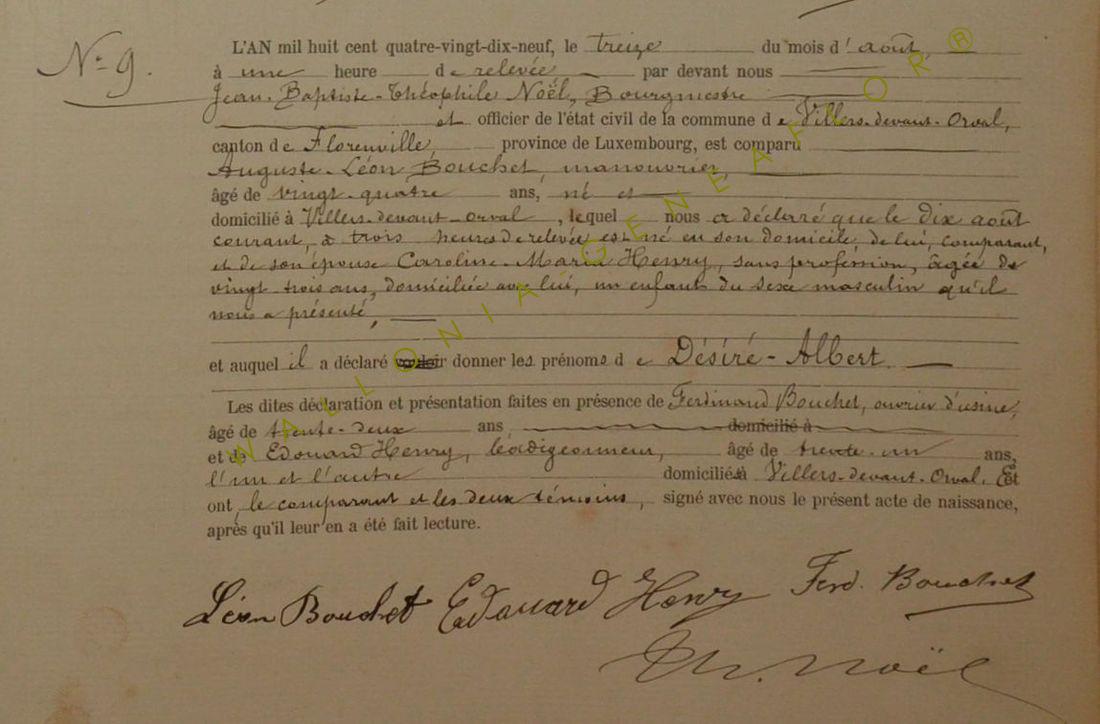 Nº 9.
L'AN mil huit cent quatre-vingt-dix-neuf, le treize du mois d'août,
à une heure de relevée par devant nous
Jean-Baptiste-Théophile Noël, Bourgmestre
et officier de l'état civil de la commune de Villers-devant-Orval,
canton de Florenville, province de Luxembourg, est comparu
Auguste-Léon Bouchet, manouvrier,
âgé de vingt-quatre ans, né et
domicilié à Villers-devant-Orval, lequel nous a déclaré que le dix août
courant, à trois heures de relevée est né en son domicile, de lui, comparant,
et de son épouse Caroline-Maria Henry, sans profession, âgée de
vingt trois ans, domiciliée avec lui, un enfant du sexe masculin qu'il
nous a présenté,
et auquel il a déclaré vouloir donner les prénoms de Désiré-Albert.
Les dites déclaration et présentation faites en présence de Ferdinand Bouchet, ouvrier d'usine,
âgé de trente-deux ans, domicilié à
et de Edouard Henry, badigeonneur, âgé de trente-un ans,
l'un et l'autre domiciliés à Villers-devant-Orval. Et
ont, le comparant et les deux témoins, signé avec nous le présent acte de naissance,
après qu'il leur en a été fait lecture.
Léon Bouchet Edouard Henry Ferd. Bouchet
Th. Noël
WALLONIA GENEAFLOR ®